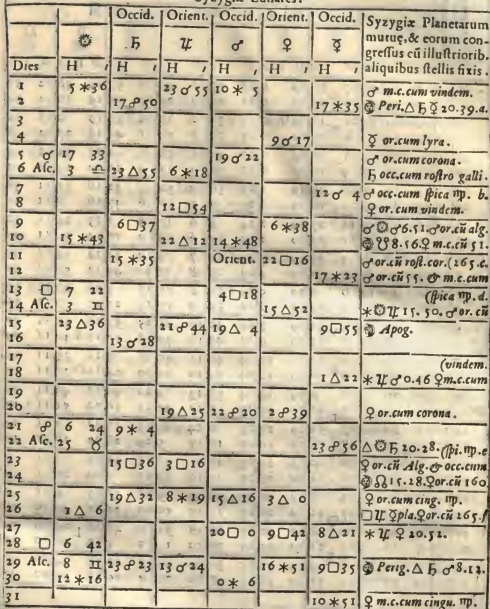 Syzygiæ Lunares.
Occid. Orient. Occid. Orient. Occid. Syzygiæ Planetarum
mutuę, & eorum con-
☼ ♄ ♃ ♂ ♀ ☿ gressus cū illustriorib.
aliquibus stellis fixis.
Dies H ′ H ′ H ′ H ′ H ′ H ′
1 5 ⚹ 36 23 ☌ 55 10 ⚹ 5 ♂ m.c. cum vindem.
2 17 ☍ 50 17 ⚹ 35 Peri. △ ♄ ☿ 20.39.a.
3
4 9 ☌ 17 ☿ or. cum lyra.
5 ☌ 17 33 19 ☌ 22 ♂ or. cum corona.
6 Asc. 3 ♎ 23 △ 55 6 ⚹ 18 ♄ occ. cum rostro galli.
7 12 ☌ 4 ♂ occ. cum spica ♍. b.
8 12 □ 54 ♀ or. cum vindem.
9 6 □ 37 6 ⚹ 38 ☌ ☼ ♂ 6.51. ♂ or. cū alg.
10 15 ⚹ 43 22 △ 12 14 ⚹ 48 ☋ 8.56. ♀ m.c. cū 51.
11 15 ⚹ 35 Orient. 22 □ 16 ♂ or. cū rost. cor. (265.c.
12 17 ⚹ 23 ♂ or. cū 55. & m.c. cum
13 □ 7 22 4 □ 18 (spica ♍. d.
14 Asc. 3 ♊ 15 △ 52 ⚹ ☼ ♃ 15.50. ♂ or. cū
15 23 △ 36 21 ☍ 44 19 △ 4 9 □ 55 Apog.
16 13 ☌ 28
17 (vindem.
18 1 △ 22 ⚹ ♃ ♂ 0.46 ♀ m.c. cum
19
20 19 △ 25 22 ☍ 20 2 ☍ 39 ♀ or. cum corona.
21 ☍ 6 24 9 ⚹ 4
22 Asc. 25 ♉ 23 ☍ 56 △ ☼ ♄ 20.28. (spi. ♍. e
23 15 □ 36 3 □ 16 ♀ or. cū Alg. & occ. cum
24 ☊ 15.28. ♀ or. cū 160.
25 19 △ 32 8 ⚹ 19 15 △ 16 3 △ 0 ♀ or. cum cing. ♍.
26 1 △ 6 □ ♃ ☿ pla. ♀ or. cū 265. f
27 20 □ 0 9 □ 42 8 △ 21 ⚹ ♃ ♀ 20.52.
28 □ 6 42
29 Asc. 8 ♊ 23 ☍ 23 13 ☌ 24 16 ⚹ 51 9 □ 35 Perig. △ ♄ ♂ 8.12.
30 12 ⚹ 16 0 ⚹ 6
31 10 ⚹ 51 ♀ m.c. cum cingu. ♍.